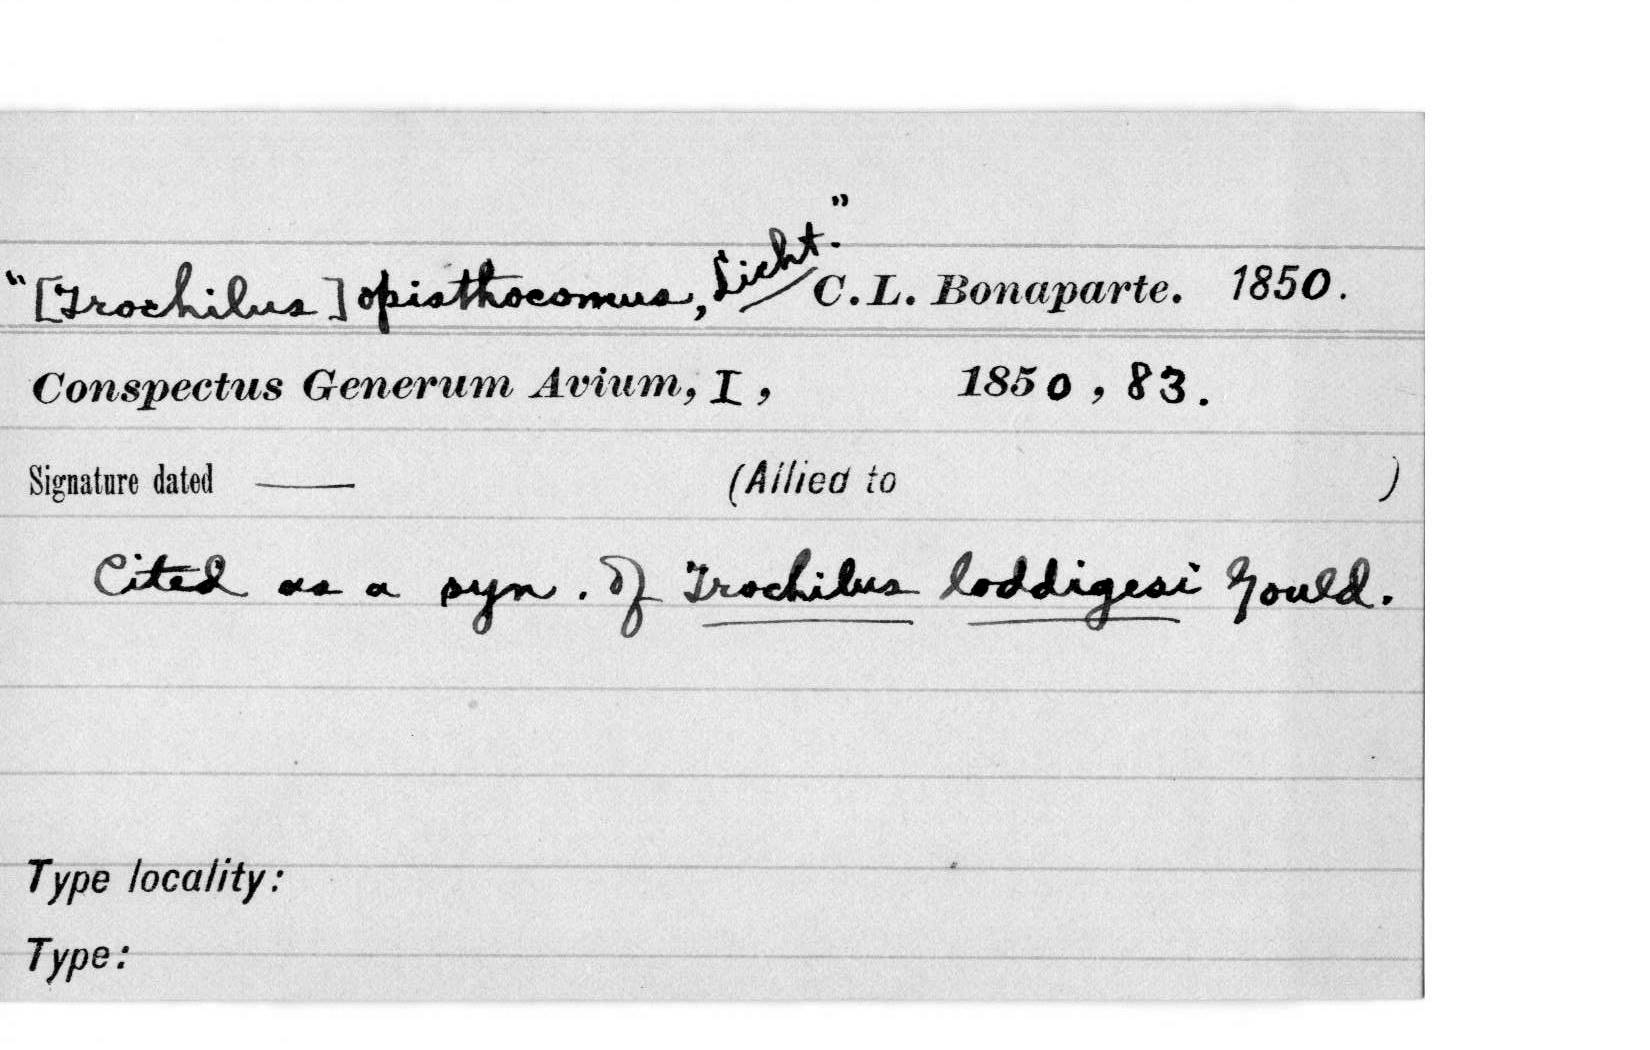 "[Trochilus] opisthocomus, Licht." C.L. Bonaparte. 1850.
Conspectus Generum Avium, I, 1850, 83.
Signature dated —— (Allied to )
Cited as a syn. of Trochilus loddigesi Gould.
Type locality:
Type: